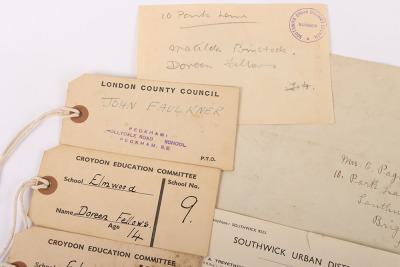 10 Park Lane
Matilda
Doreen Fellows.
LONDON COUNTY COUNCIL
JOHN FAULKNER
PECKHAM
HOLLYDALE ROAD SCHOOL
PECKHAM, S.E.
P.T.O.
CROYDON EDUCATION COMMITTEE
School Elmwood
School No.
9.
Name Doreen Fellows.
Age 14
CROYDON EDUCATION COMMITTEE
School
Mrs
10. Park
SOUTHWICK URBAN